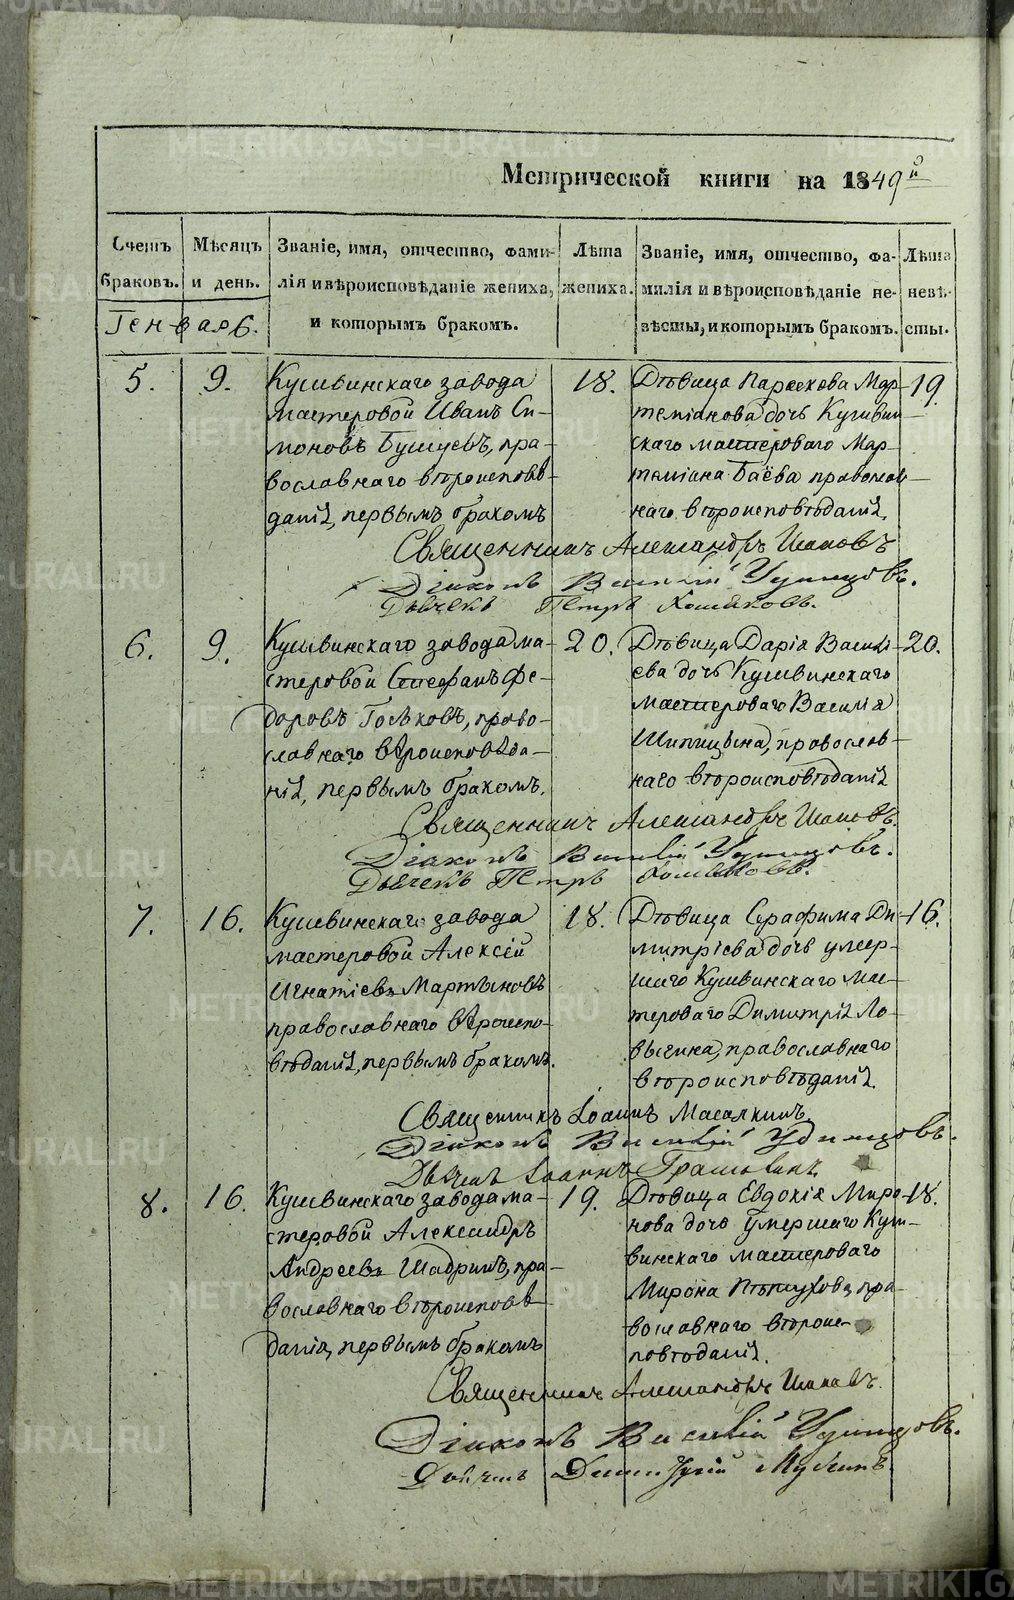 Метрической книги на 1849й
Счетъ браковъ.
Мѣсяцъ и день.
Званіе, имя, отчество, фами-
лія и вѣроисповѣданіе жениха,
и которымъ бракомъ.
Лѣта
жениха.
Званіе, имя, отчество, фа-
милія и вѣроисповѣданіе не-
вѣсты, и которымъ бракомъ.
Лѣта
невѣ-
сты.
Генварь.
5. 9.
Кушвинскаго завода
мастеровой Иванъ Си-
моновъ Бушуевъ, пра-
вославнаго вѣроисповѣ-
данія, первымъ бракомъ
18.
Дѣвица Параскева Мар-
темїанова дочь Кушвин-
скаго мастероваго Мар-
темїана Баёва православ-
наго вѣроисповѣданія
19.
Священникъ Александръ Поповъ
Діаконъ Василій Удинцовъ.
Дьячекъ Петръ Хомяковъ.
6. 9.
Кушвинскаго завода ма-
стеровой Стефанъ Фе-
доровъ Гольковъ, право-
славнаго вѣроисповѣда-
нія, первымъ бракомъ.
20.
Дѣвица Дарія Василі-
ева дочь Кушвинскаго
мастероваго Василія
Шипицына, православ-
наго вѣроисповѣданія
20.
Священникъ Александръ Поповъ.
Діаконъ Василій Удинцовъ.
Дьячекъ Петръ Хомяковъ.
7. 16.
Кушвинскаго завода
мастеровой Алексій
Игнатіевъ Мартыновъ
православнаго вѣроиспо-
вѣданія, первымъ бракомъ.
18.
Дѣвица Серафима Ди-
митріева дочь умер-
шаго Кушвинскаго мас-
тероваго Димитрія Ло-
выгина, православнаго
вѣроисповѣданія.
16.
Священникъ Іоаннъ Масалкинъ.
Діаконъ Василій Удинцовъ.
Дьячекъ Іоаннъ
8. 16.
Кушвинскаго завода ма-
стеровой Александръ
Андреевъ Шадринъ, пра-
вославнаго вѣроисповѣ-
данія, первымъ бракомъ
19.
Дѣвица Евдокія Миро-
нова дочь умершаго Куш-
винскаго мастероваго
Мирона Пѣтухова, пра-
вославнаго вѣроис-
повѣданія.
18.
Священникъ Александръ Поповъ.
Діаконъ Василій Удинцовъ.
METRIKI.GASO-URAL.RU